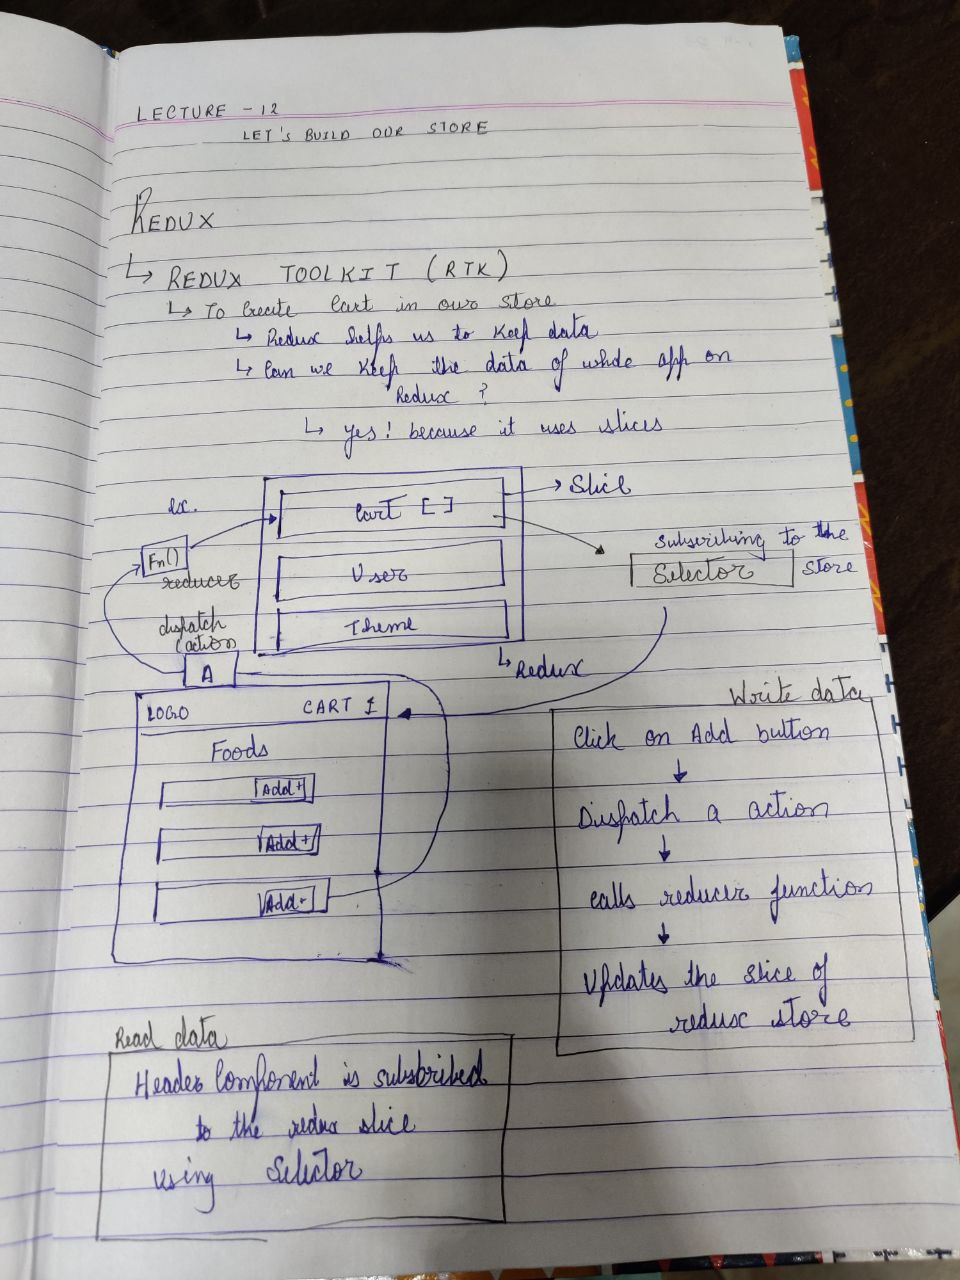 LECTURE - 12
LET'S BUILD OUR STORE
REDUX
↳ REDUX TOOLKIT (RTK)
↳ To Create Cart in our store
↳ Redux helps us to keep data
↳ Can we keep the data of whole app on
Redux ?
↳ yes! because it uses slices
ex.
Cart [ ]
→ Slice
Fn()
reducer
User
subscribing to the
Selector
store
Theme
dispatch
(action)
A
↳ Redux
LOGO CART 1
Foods
Add+
Add+
Add+
Write data
Click on Add button
↓
Dispatch a action
↓
calls reducer function
↓
Updates the slice of
redux store
Read data
Header Component is subscribed
to the redux slice
using Selector